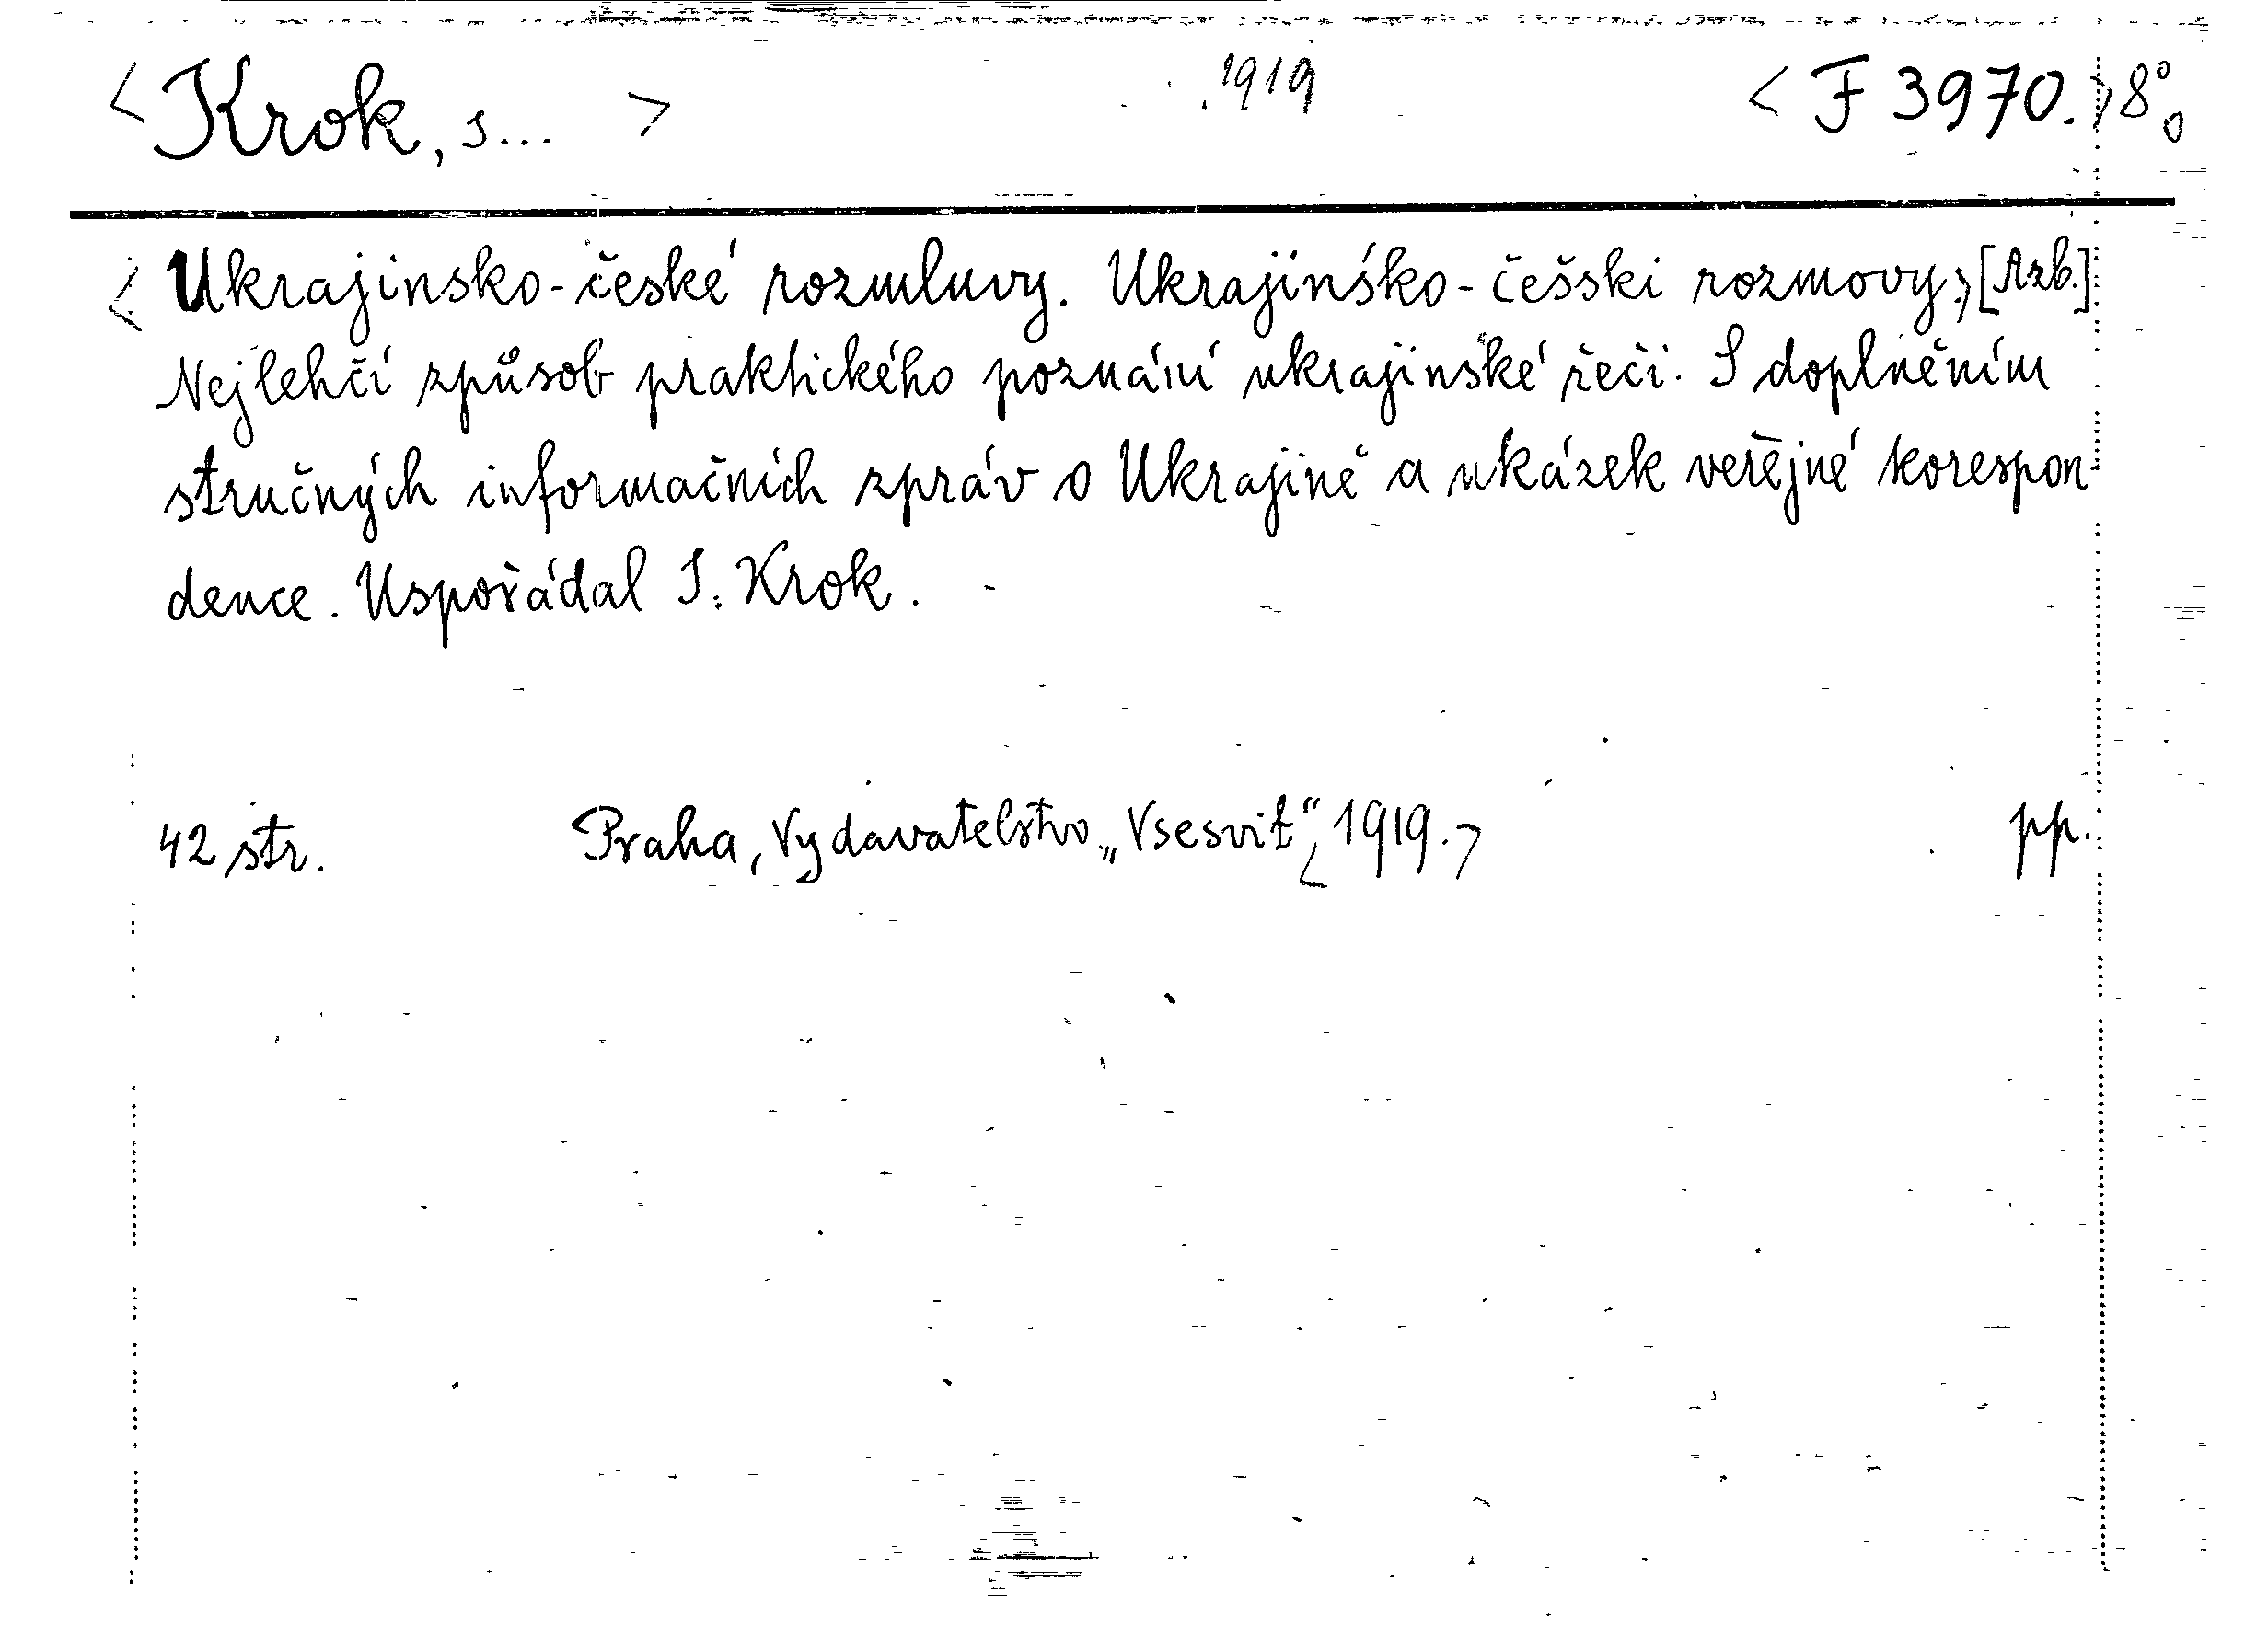 <Krok, s... > 1919 <F 3970.> 8°
<Ukrajinsko-české rozmluvy. Ukrajinśko-češski rozmovy.> [Azb.]
Nejlehčí způsob praktického poznání ukrajinské řeči. S doplněním
stručných informačních zpráv o Ukrajině a ukázek veřejné korespon-
dence. Uspořádal S. Krok.
42 str. Praha, Vydavatelstvo „Vsesvit“, <1919.> pp.